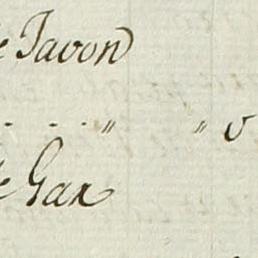 e Javon
. . . " " v
e Gax